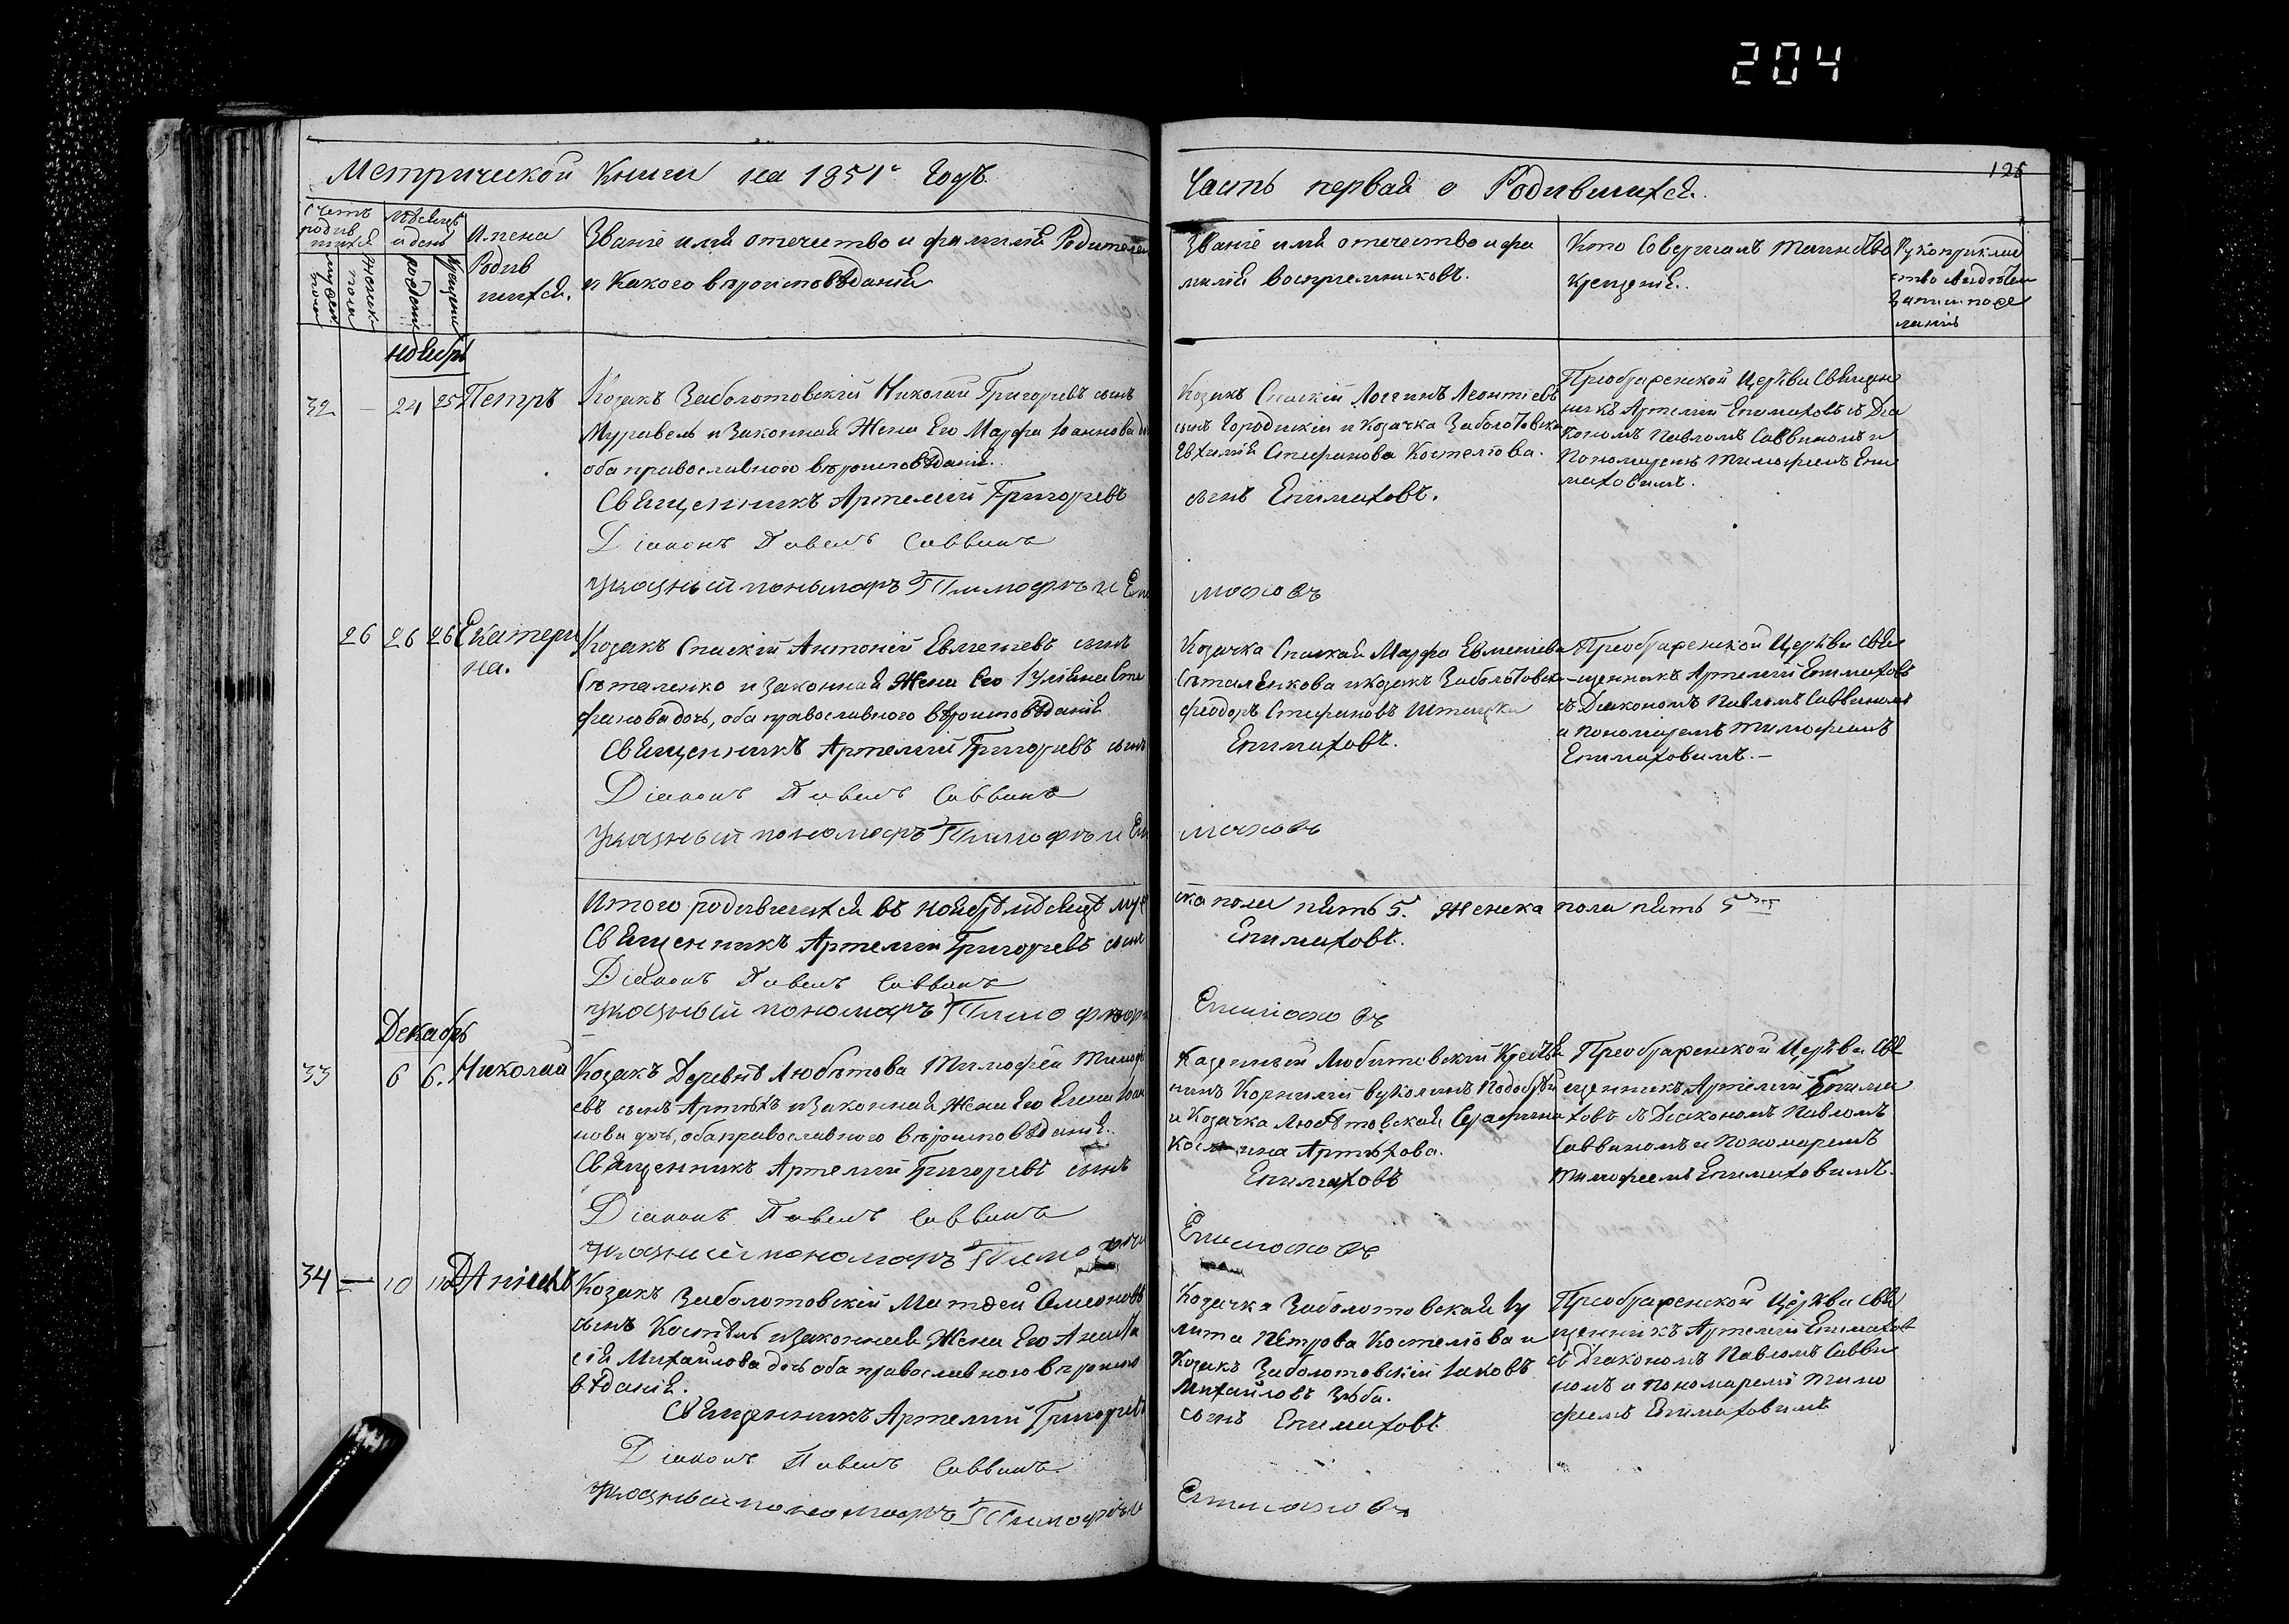 204
125
Метрической Книги на 1851й Годъ
Часть первая о Родившихся.
Счетъ родившихся
мужеска пола
женска пола
Мѣсяцъ и день
рожденія
крещенія
Имена Родившихся.
Званіе имя отечество и фамилія Родителей
и Какого вѣроисповѣданія
Званіе имя отечество и фа
милія воспріемниковъ.
Кто Совершалъ таинство
крещенія.
Рукоприклад
ство свидѣтелей
записи по же
ланію
ноябрь
32 - 24 25 Петръ
Козакъ Заболотовскій Николай Григорьевъ сынъ
Муравель и Законная Жена Его Марфа Іоаннова до
оба православного вѣроисповѣданія.
Священникъ Артемій Григорьевъ
Діаконъ Павелъ Саввинъ
указный пономаръ Тимофѣй Епи
Козакъ Спаскій Логгинъ Леонтіевъ
сынъ Городнскій и Козачка Заболотовска
Евхимія Стефанова Костелгова.
сынъ Епимаховъ.
маховъ
Преображенской Церкви Священ
никъ Артемій Епимаховъ съ Діа
кономъ Павломъ Саввиномъ и
Пономаремъ Тимофеемъ Епи
маховимъ.
26 26 26 Екатери
на.
Козакъ Спаскій Антоній Евменіевъ сынъ
Съталенко и Законная Жена Его Іуліана Сте
фанова дочь, оба православного вѣроисповѣданія
Священникъ Артемій Григорьевъ сынъ
Діаконъ Павелъ Саввинъ
указный пономаръ Тимофѣй Епи
Козачка Спаская Марфа Евменіева
Съталенкова и Козакъ Заболотовск
Феодоръ Стефановъ
Епимаховъ.
маховъ
Преображенской Церкви Свя
щенникъ Артемій Епимаховъ
съ Діакономъ Павломъ Саввиномъ
и Пономаремъ Тимофеемъ
Епимаховимъ.—
Итого родившихся въ ноябрѣ мѣсяцѣ муже
ска пола пять 5. Женска пола пять 5
Священникъ Артемій Григорьевъ сынъ
Епимаховъ.
Діаконъ Павелъ Саввинъ
указный пономаръ Тимофѣй
Епимаховъ
Декабрь
33 6 6. Николай
Козакъ Деревнѣ Любѣтова Тимофей Тимофѣ
евъ сынъ Артюхъ и Законная Жена Его Елена Іоан
нова дочь, оба православного вѣроисповѣданія.
Священникъ Артемій Григорьевъ сынъ
Діаконъ Павелъ Саввинъ
указный пономаръ Тимофѣй
Казенный Любитовскій Крестья
нинъ Корнилій Вуколинъ Подобѣй
и Козачка Любѣтовская Серафима
Космина Артюхова.
Епимаховъ
Епимаховъ
Преображенской Церкви Свя
щенникъ Артемій Епима
ховъ съ Діакономъ Павломъ
Саввиномъ и Пономаремъ
Тимофеемъ Епимаховимъ.
34 — 10 10 Даніилъ
Козакъ Заболотовскій Матфей Симеоновъ
сынъ Костѣль и Законная Жена Его Анаста
сія Михайлова дочь оба православного вѣроиспо
вѣданія.
Священникъ Артемій Григорьевъ
Діаконъ Павелъ Саввинъ.
указный пономаръ Тимофѣй
Козачка Заболотовская Іу
лита Петрова Костелгова и
Козакъ Заболотовскій Іаковъ
Михайловъ Зюба.
сынъ Епимаховъ
Епимаховъ
Преображенской Церкви Свя
щенникъ Артемій Епимахов
съ Діакономъ Павломъ Савви
номъ и Пономаремъ Тимо
феемъ Епимаховимъ